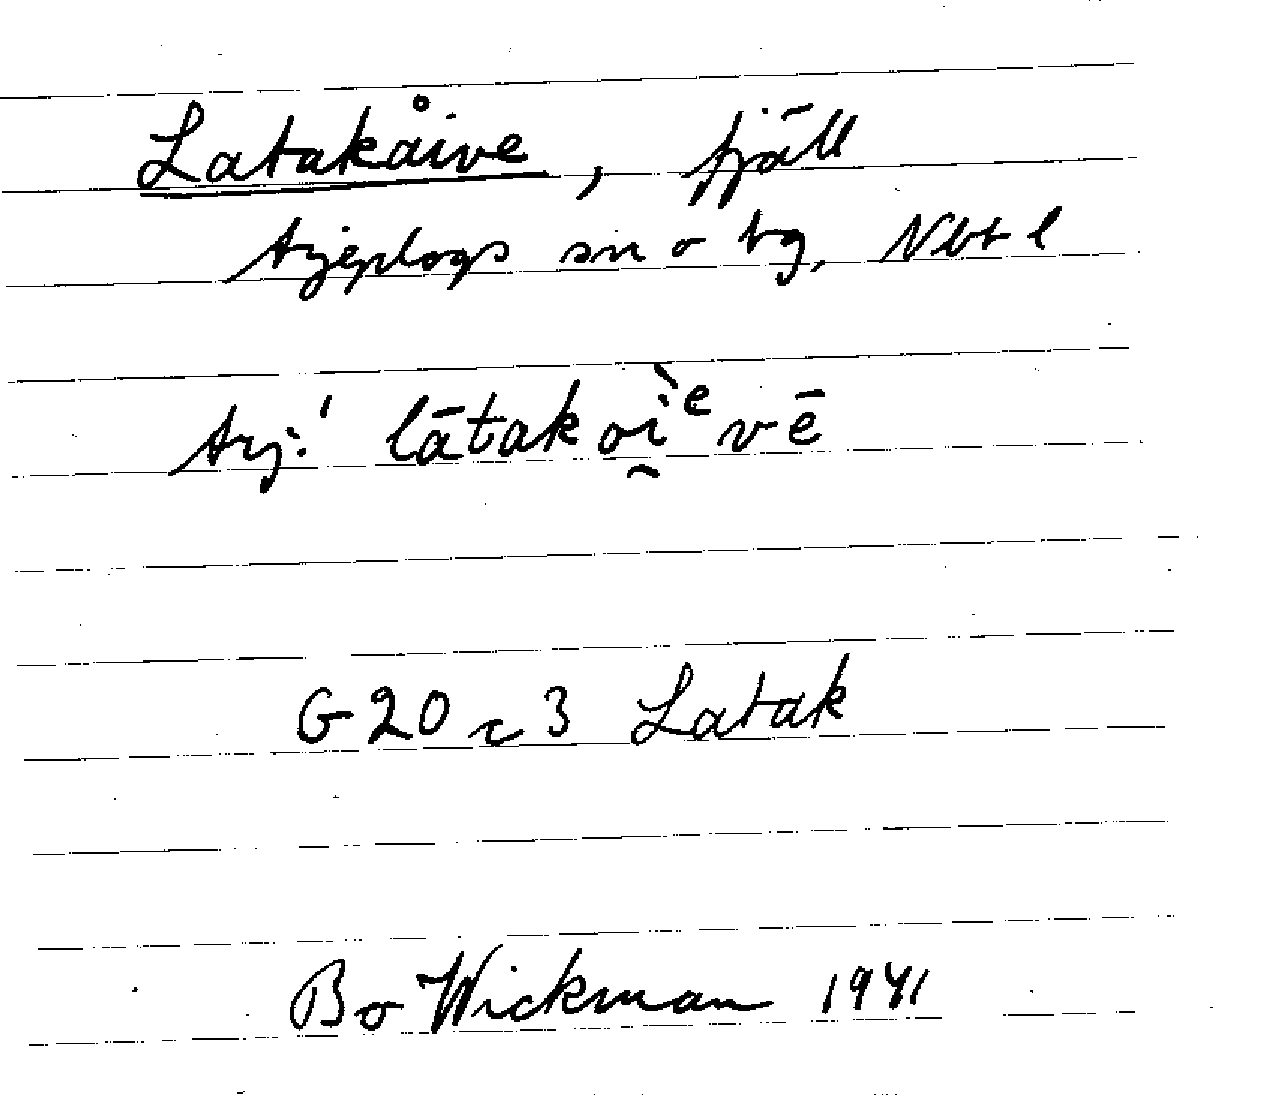 Latakåive, fjäll
Arjeplogs sn o tg, Nbt l
Arj.' lātakoì̯ᵉvē
G20 c 3 Latak
Bo Wickman 1941